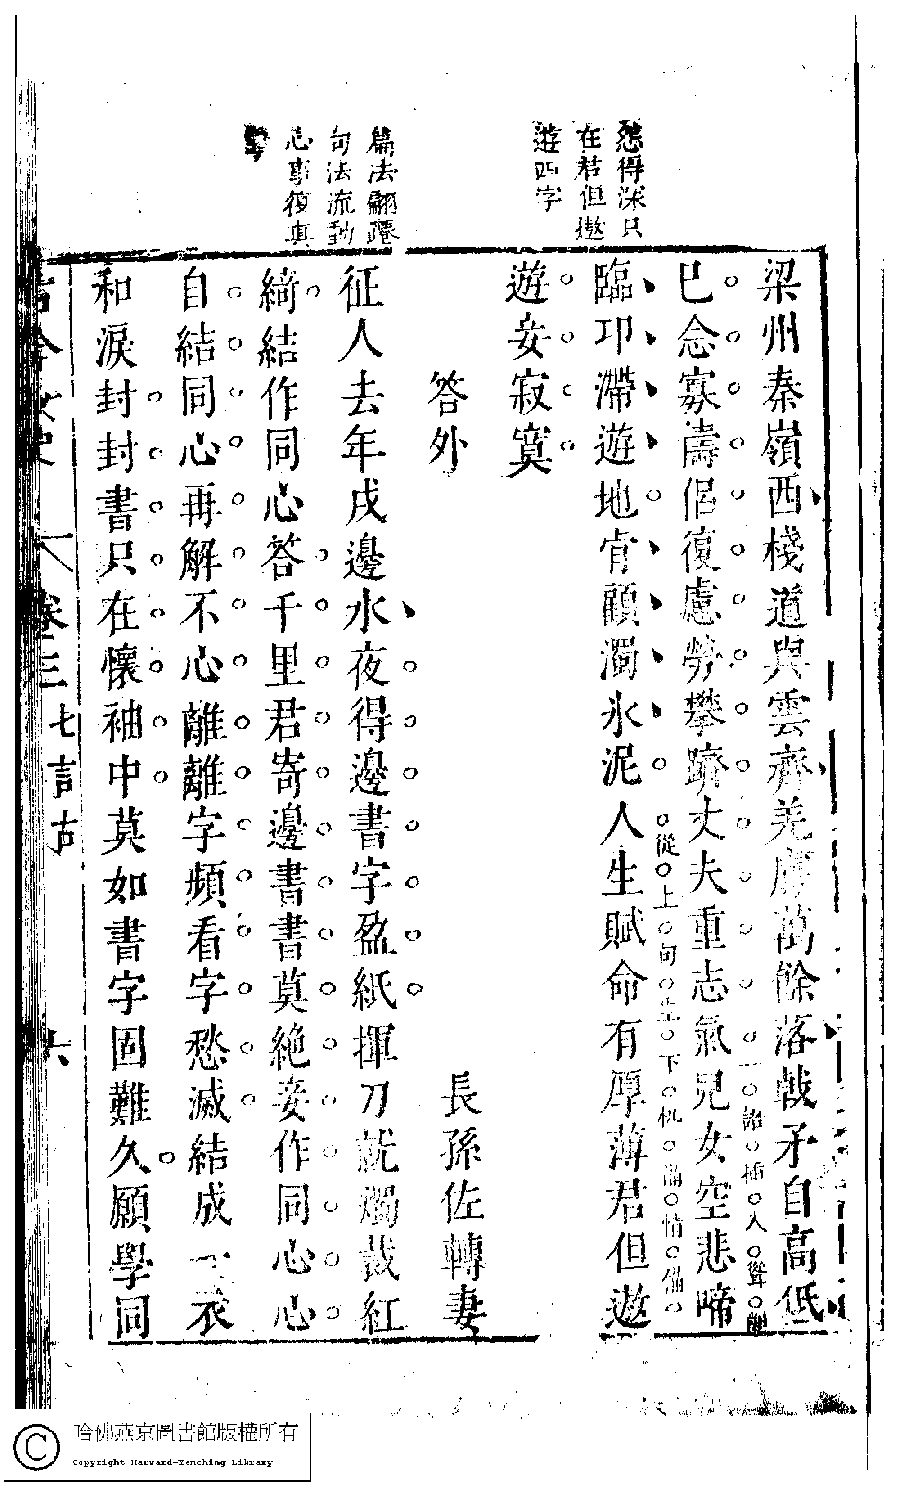 愁得深只
在君但遨
遊四字
篇法翩躚
句法流動
心事復真
摯
梁州秦嶺西棧道與雲齊羌虜萬餘落戟矛自高低
已念寡儔侶復慮勞攀躋丈夫重志氣兒女空悲啼
臨卭滯遊地肯顧濁水泥人生賦命有厚薄君但遨
遊妾寂寞
答外
長孫佐轉妻
征人去年戍邊水夜得邊書字盈紙揮刀就燭裁紅
綺結作同心答千里君寄邊書書莫絶妾作同心心
自結同心再解不心離離字頻看字愁滅結成一衣
和淚封封書只在懷袖中莫如書字固難久願學同
古今女史
卷三
七言古
六
哈佛燕京圖書館版權所有
Copyright Harvard-Yenching Library